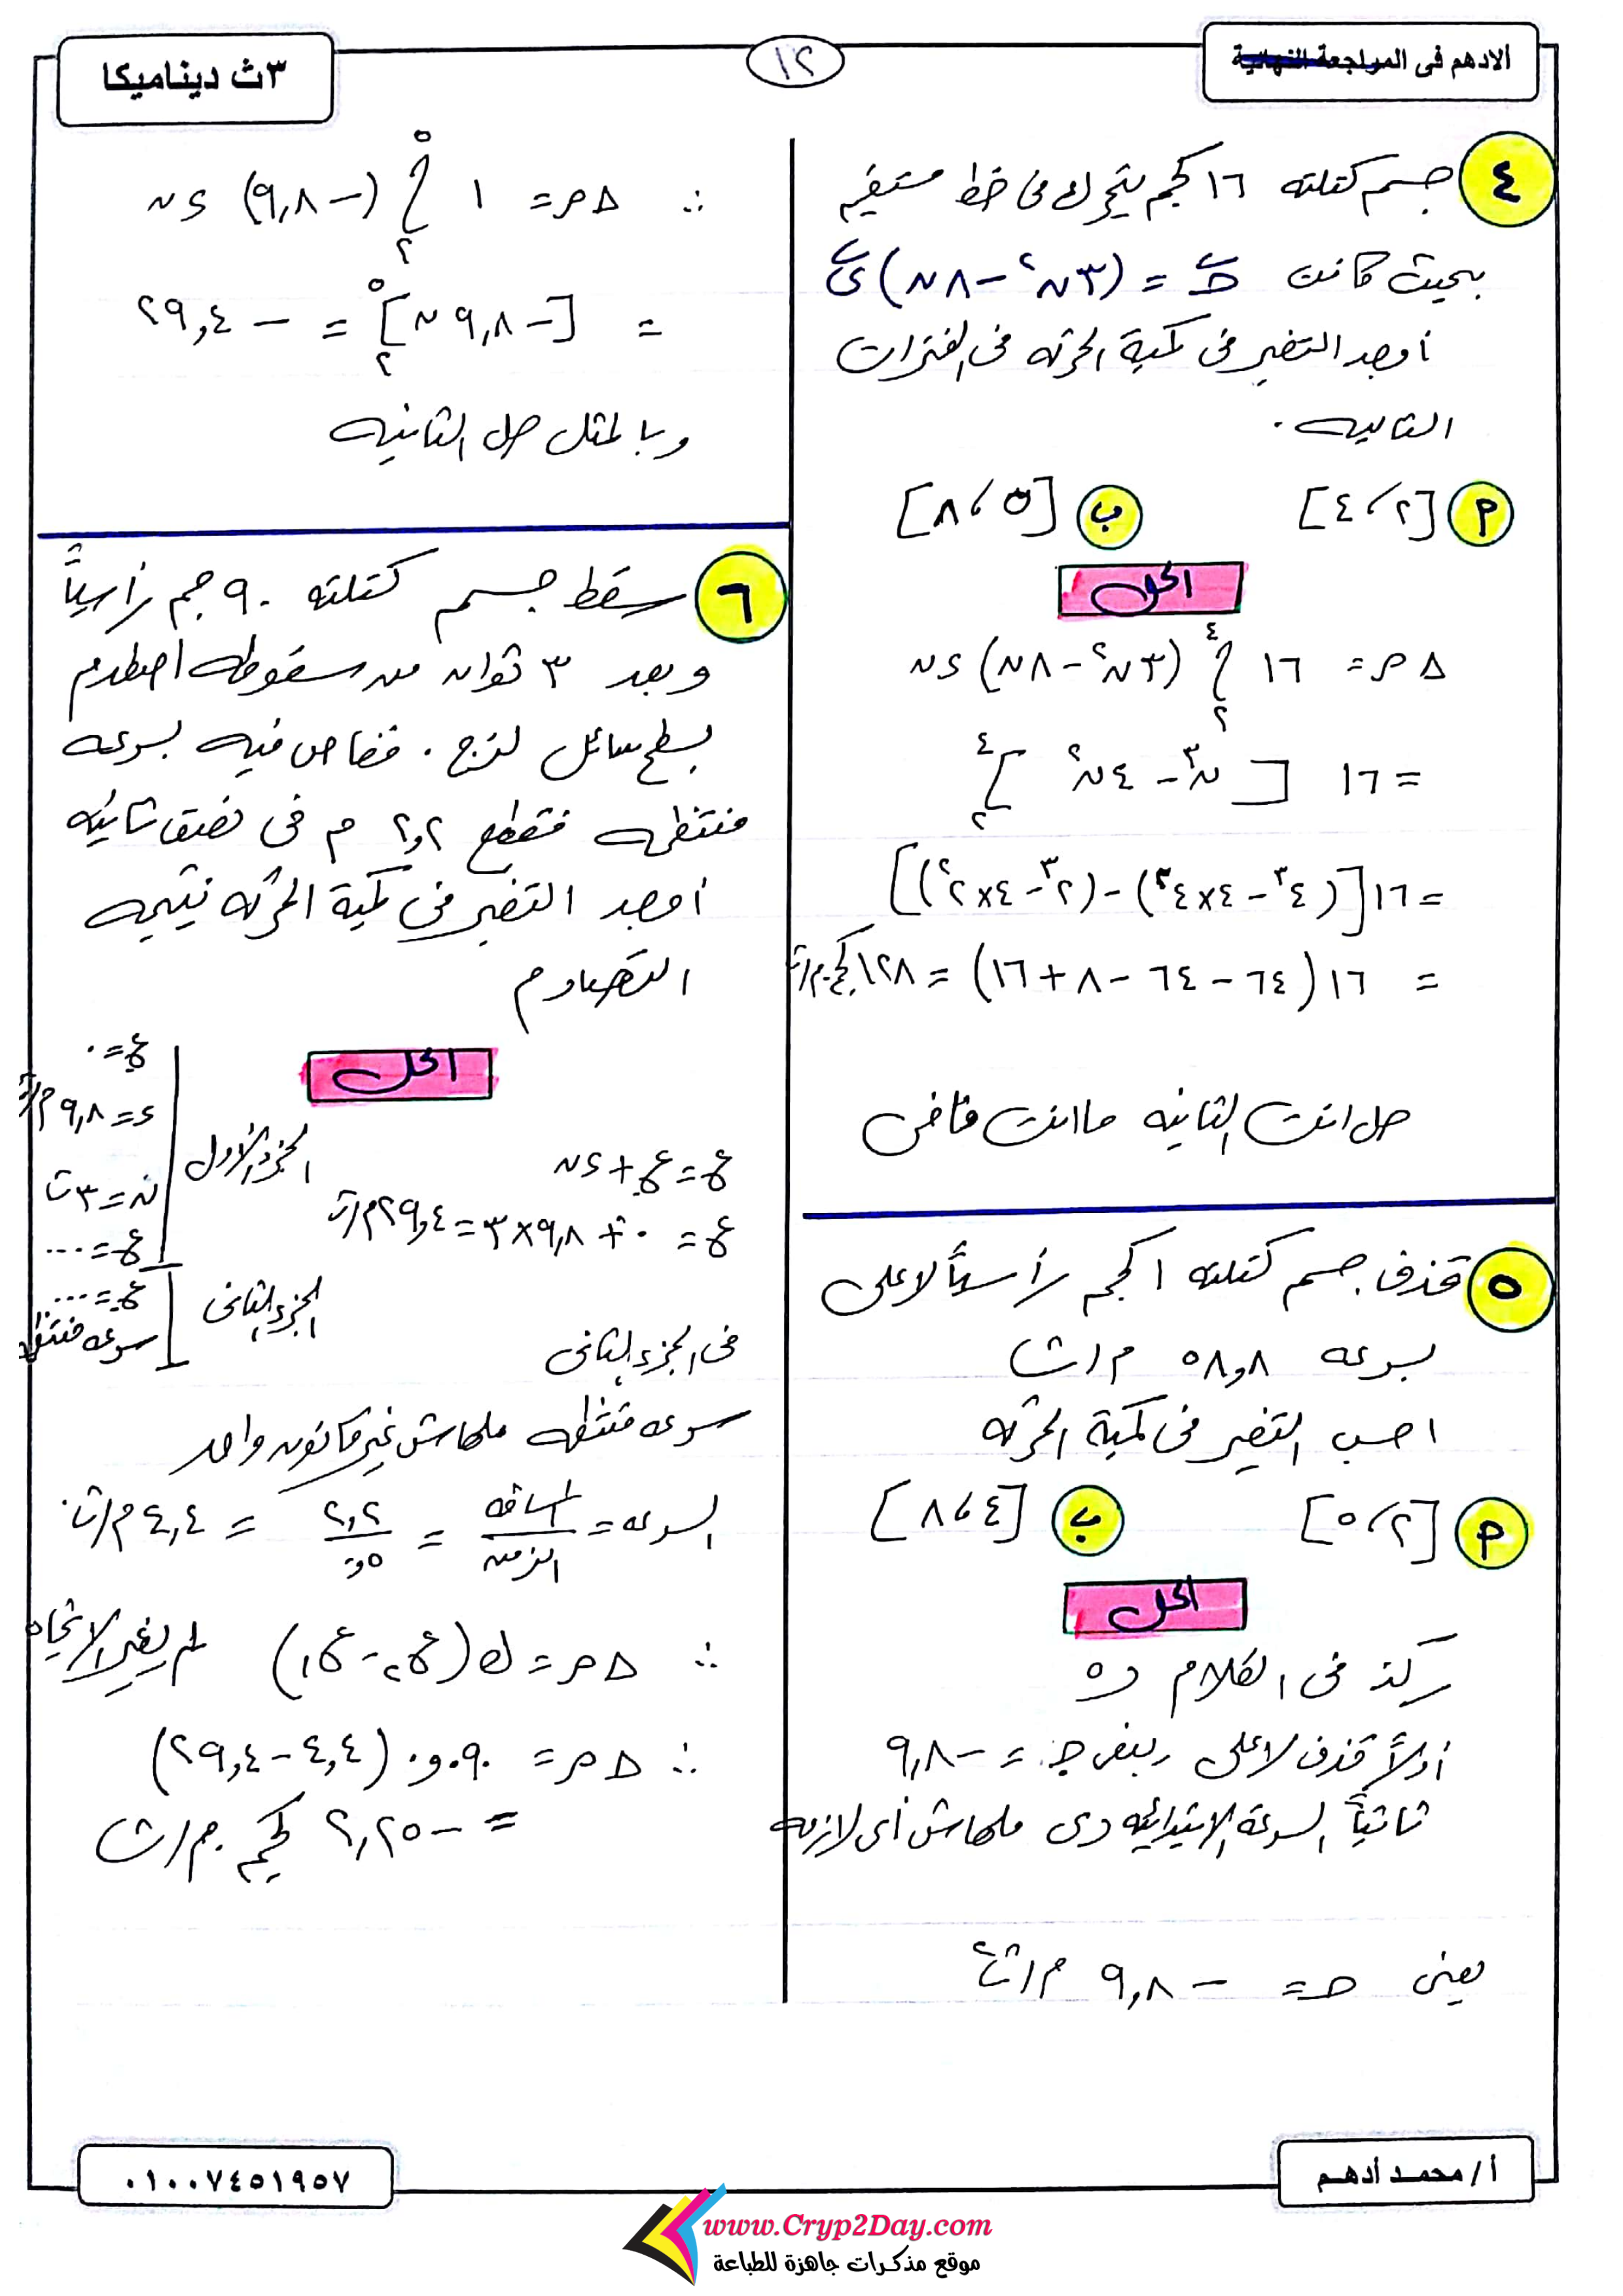 الادهم فى المراجعة النهائية
١٢
٣ث ديناميكا
٤ جسم كتلته ١٦ كجم يتحرك فى خط مستقيم
بحيث كانت جـ = (٣ن٢ - ٨ن) ى
أوجد التغير فى كمية الحركة فى الفترات
التالية .
أ [٢ ، ٤] ب [٥ ، ٨]
الحل
Δ م = ١٦ ∫٢^٤ (٣ن٢ - ٨ن) ءن
= ١٦ [ن٣ - ٤ن٢]٢^٤
= ١٦ [(٤٣ - ٤×٤٢) - (٢٣ - ٤×٢٢)]
= ١٦ (٦٤ - ٦٤ - ٨ + ١٦) = ١٢٨ كجم.م/ث
حل انت الثانيه ما انت فاضى
٥ قذف جسم كتلته ١ كجم رأسياً لاعلى
بسرعه ٥٨,٨ م/ث
احسب التغير فى كمية الحركه
أ [٢ ، ٥] ب [٤ ، ٨]
الحل
ركز فى الكلام ده
أولاً قذف لاعلى يبقى جـ = -٩,٨
ثانياً السرعة الابتدائيه دى ملهاش أى لازمه
يعنى جـ = - ٩,٨ م/ث٢
∴ Δ م = ١ ∫٢^٥ (-٩,٨) ءن
= [-٩,٨ ن]٢^٥ = - ٢٩,٤
وبالمثل حل الثانيه
٦ سقط جسم كتلته ٩٠ جم رأسياً
وبعد ٣ ثوان من سقوطه اصطدم
بسطح سائل لزج . فغاص فيه بسرعه
منتظمه فقطع ٢,٢ م فى نصف ثانيه
أوجد التغير فى كمية الحركه نتيجه
التصادم
الحل
ع.=٠
ء=٩,٨ م/ث٢
ن=٣ث
ع=...
الجزء الأول
ع=...
سرعه منتظمه
الجزء الثانى
ع = ع. + ءن
ع = ٠ + ٩,٨×٣ = ٢٩,٤ م/ث
فى الجزء الثانى
سرعه منتظمه ملهاش غير قانون واحد
السرعه = المسافه / الزمن = ٢,٢ / ٠,٥ = ٤,٤ م/ث
∴ Δ م = ك (ع٢ - ع١) لم يغير الاتجاه
∴ Δ م = ٠,٠٩ (٤,٤ - ٢٩,٤)
= - ٢,٢٥ كجم . م/ث
أ / محمـد أدهـم
٠١٠٠٧٤٥١٩٥٧
www.Cryp2Day.com
موقع مذكرات جاهزة للطباعة